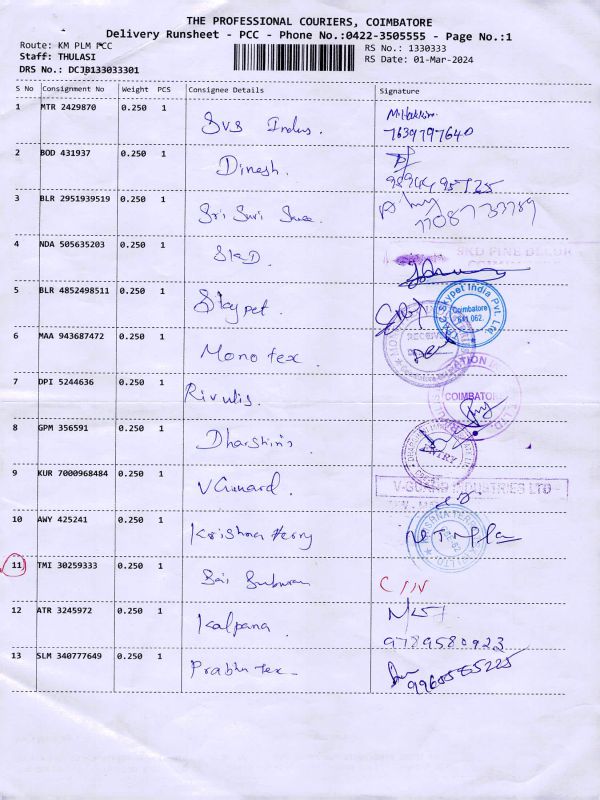 THE PROFESSIONAL COURIERS, COIMBATORE
Delivery Runsheet - PCC - Phone No.:0422-3505555 - Page No.:1
Route: KM PLM PCC
RS No.: 1330333
Staff: THULASI
RS Date: 01-Mar-2024
DRS No.: DCJB133033301
S No Consignment No Weight PCS Consignee Details Signature
1 MTR 2429870 0.250 1 SVB Indus.
7639797640
2 BOD 431937 0.250 1 Dinesh.
3 BLR 2951939519 0.250 1 Sri Suri
4 NDA 505635203 0.250 1 SKD. SKD FINE DECOR
5 BLR 4852498511 0.250 1 Skypet Skypet India Pvt. Ltd.
Coimbatore
641 062.
6 MAA 943687472 0.250 1 Monotex RECEIVED
7 DPI 5244636 0.250 1 Rivulis. COIMBATORE
8 GPM 356591 0.250 1 Dharshinis
9 KUR 7000968484 0.250 1 V Guard. V-GUARD INDUSTRIES LTD
10 AWY 425241 0.250 1 Krishna Terry
11 TMI 30259333 0.250 1 Sai
12 ATR 3245972 0.250 1 Kalpana
9789580923
13 SLM 340777649 0.250 1 Prabhu tex